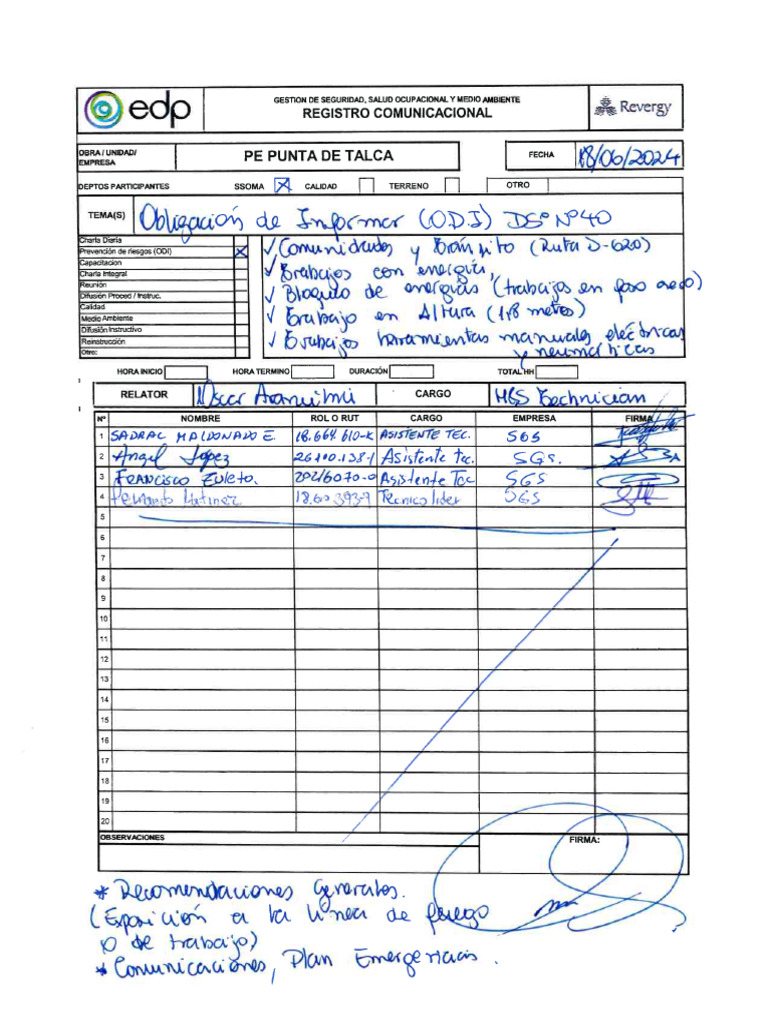 edp
GESTION DE SEGURIDAD, SALUD OCUPACIONAL Y MEDIO AMBIENTE
REGISTRO COMUNICACIONAL
Revergy
OBRA / UNIDAD/ EMPRESA
PE PUNTA DE TALCA
FECHA 18/06/2024
DEPTOS PARTICIPANTES SSOMA X CALIDAD TERRENO OTRO
TEMA(S) Obligación de Informar (ODI) DSº Nº40
Charla Diaria
Prevención de riesgos (ODI) X
Capacitacion
Charla Integral
Reunión
Difusión Proced / Instruc.
Calidad
Medio Ambiente
Difusión Instructivo
Reinstrucción
Otro:
✓ Comunidades y Tránsito (Ruta D-620)
✓ Trabajos con energía,
✓ Bloqueo de energías (trabajos en
✓ Trabajo en Altura (1,8 metros)
✓ Trabajos herramientas manuales, eléctricas
y neumáticas
HORA INICIO HORA TERMINO DURACIÓN TOTAL HH
RELATOR Oscar CARGO HSS Technician
Nº NOMBRE ROL O RUT CARGO EMPRESA FIRMA
1 SADRAC MALDONADO E. 18.664.610-K ASISTENTE TEC. SGS
2 Angel Lopez Asistente tec SGS.
3 FRANCISCO 20216070-0 Asistente Tec SGS
4 Fernando Matinez Tecnico lider SGS
5
6
7
8
9
10
11
12
13
14
15
16
17
18
19
20
OBSERVACIONES
FIRMA:
* Recomendaciones Generales.
(Exposición a la línea de fuego
o de trabajo)
* Comunicaciones, Plan Emergencias.